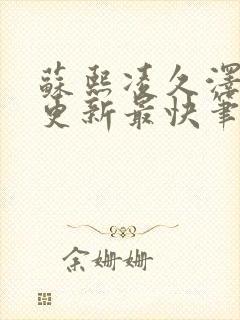 蘇熙凌久澤
更新最快筆
余姗姗